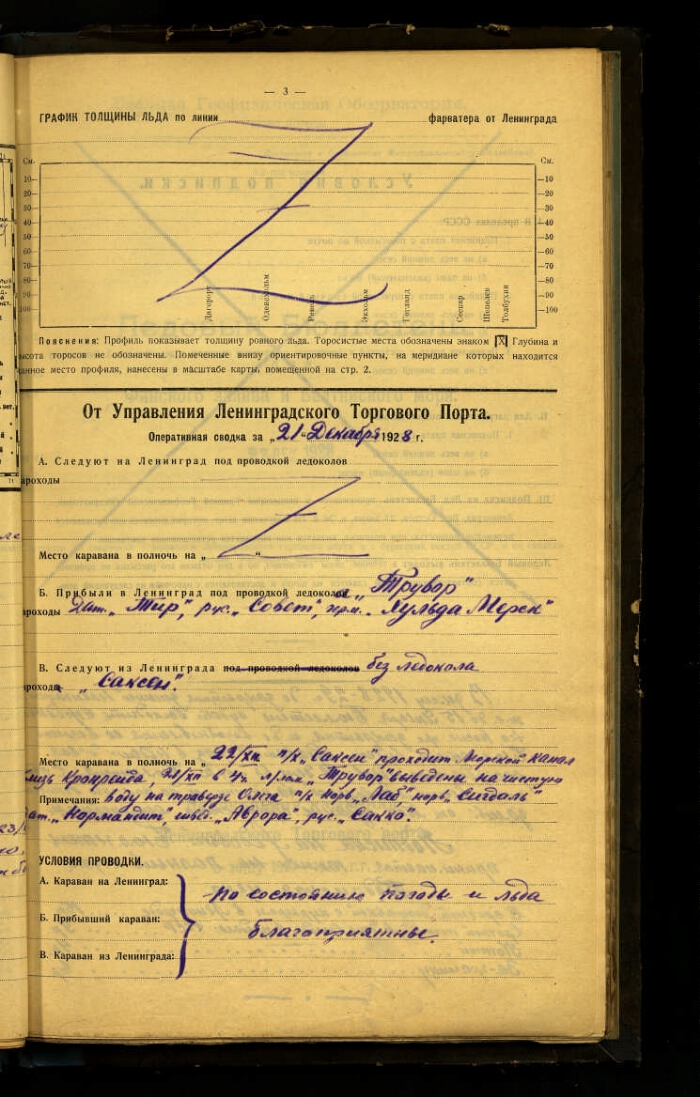 — 3 —
ГРАФИК ТОЛЩИНЫ ЛЬДА по линии фарватера от Ленинграда
См. См.
10 10
20 20
30 30
40 40
50 50
60 60
70 70
80 80
90 90
100 100
Дагерорт Оденсхольм Ревель Экхольм Гогланд Сескар Шепелев Толбухин
Пояснения: Профиль показывает толщину ровного льда. Торосистые места обозначены знаком X Глубина и
ысота торосов не обозначены. Помеченные внизу ориентировочные пункты, на меридиане которых находится
анное место профиля, нанесены в масштабе карты, помещенной на стр. 2.
От Управления Ленинградского Торгового Порта.
Оперативная сводка за „21“ Декабря 1928 г.
А. Следуют на Ленинград под проводкой ледоколов
ароходы
Место каравана в полночь на „ “
Б. Прибыли в Ленинград под проводкой ледоколов „Трувор“
ароходы Дат. „Тир“, рус. „Совет“, герм. „Хульда Мерск“
В. Следуют из Ленинграда под проводкой ледоколов без ледокола
ароход „Саксен“.
Место каравана в полночь на „22/XII п/х „Саксен“ проходит Морской канал
близ Кронштадта, 22/XII в 4 ч. „Трувор“ выведены на чистую
Примечания: воду на траверзе норв. „Лаб“, норв. „Сигдаль“
дат. „Нормандит“, швед. „Аврора“, рус. „Сакко“.
УСЛОВИЯ ПРОВОДКИ.
А. Караван на Ленинград:
по состоянию погоды и льда
Б. Прибывший караван:
благоприятные.
В. Караван из Ленинграда: